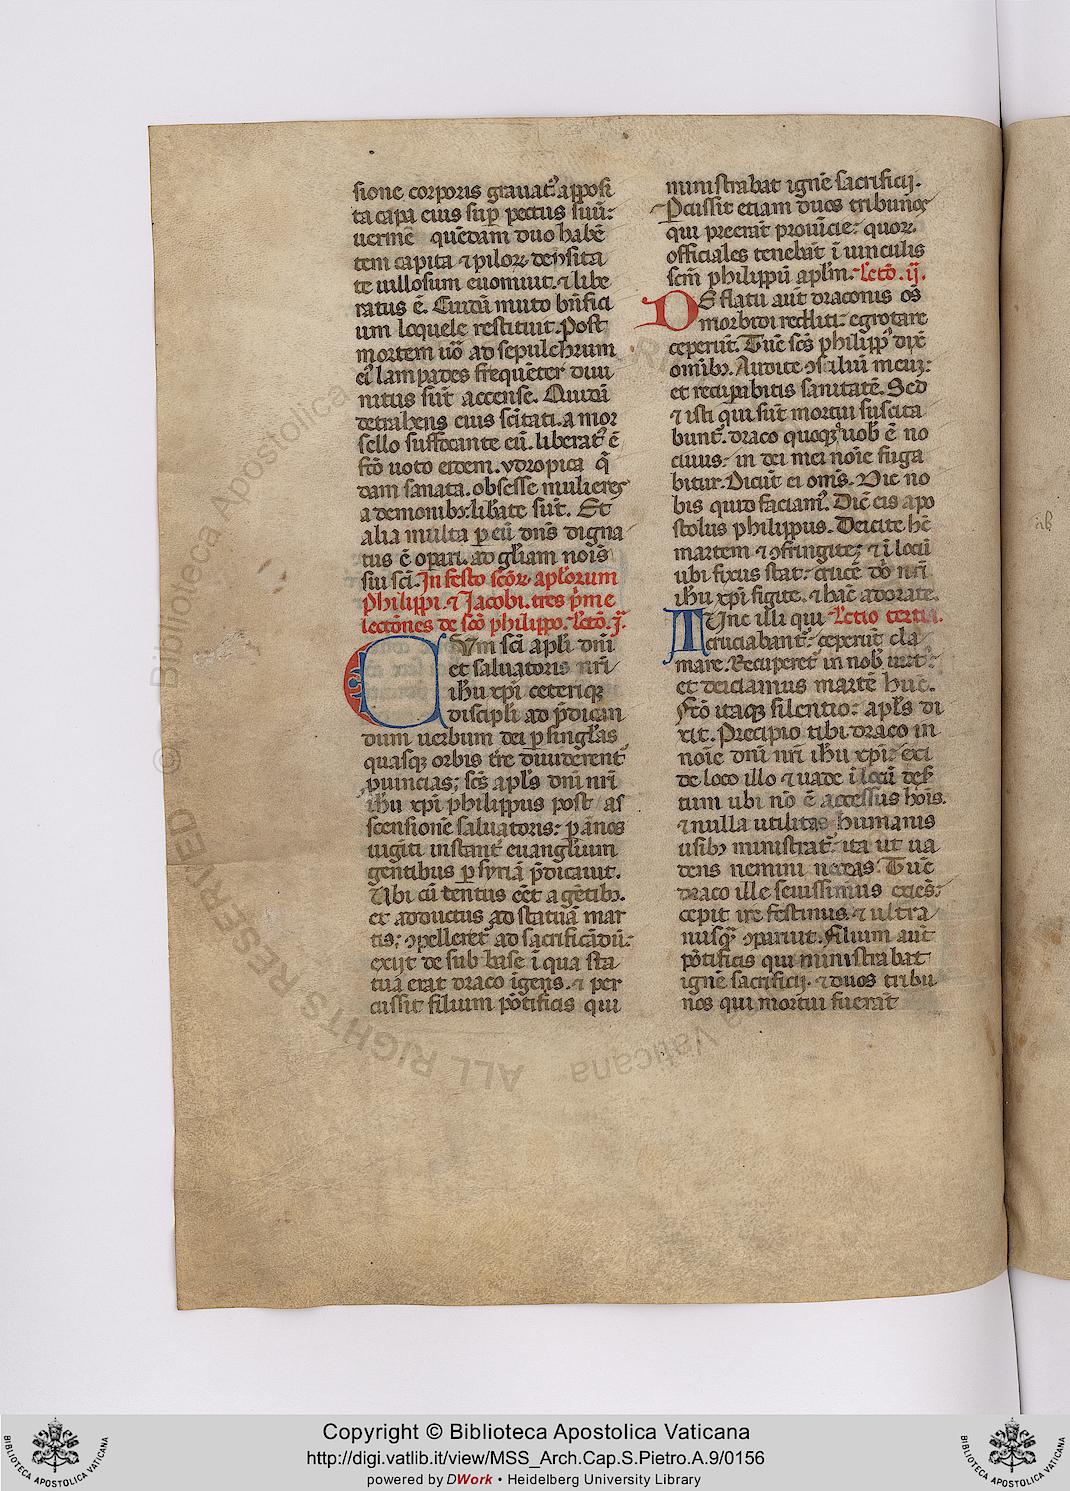 sione corporis grauat᷒ apposi
ta capa eius sup̄ pectus suū:
uermē quēdam duo habē
tem capita ⁊ piloꝝ densita
te uillosum euomuit. ⁊ libe
ratus ē. Cuidā muto bn̄fici
um loquele restituit. Post
mortem uō ad sepulchrum
ei᷒ lampades frequēter diui
nitus sūt accense. Quidā
detrahens eius scītati. a mor
sello suffocante eū. liberat᷒ ē
fcō uoto eidem. ydropica q̄
dam sanata. obsesse mulieres
a demonibꝫ libate sūt. Et
alia multa p eū dn̄s digna
tus ē opari. ad gl̄iam nois̄
sui scī. In festo scōꝝ aplōrum
Philippi. ⁊ Jacobi. tres p̄me
lectōnes de scō philippo. Lectō. j̄.
CUm scī apl̄i dn̄i
et saluatoris nr̄i
ih̄u xp̄i ceterique
discipl̄i ad p̄dican
dum uerbum dei p singl̄as
quasqꝫ orbis tr̄re diuiderent᷒
puincias; scs̄ apl̄s dn̄i nr̄i
ih̄u xp̄i philippus post as
scensionē saluatoris: p ānos
uiginti instant᷒ euangl̄ium
gentibus p syriā p̄dicauit.
Ubi cū tentus eēt a gētibꝫ.
et adductus ad statuā mar
tis; ꝯpelleret᷒ ad sacrificādū:
exijt de sub base ī qua sta
tua erat draco īgens. ⁊ per
cussit filium pōtificis qui
ministrabat ignē sacrificij.
Pcussit etiam duos tribunos
qui preerāt prouīcie: quoꝝ
officiales tenebāt ī uinculis
scm̄ philippū apl̄m. Lectō. ij̄.
DE flatu aūt draconis os̄
morbidi redditi: egrotare
ceperūt. Tūc scs̄ philipp᷒ dix̄
omībꝫ. Audite ꝯsiliū meuꝫ:
et recupabitis sanitatē. Sed
⁊ isti qui sūt mortui suscita
bunt᷒. draco quoqꝫ q uob̄ ē no
ciuus: in dei mei noīe fuga
bitur. Dicūt ei om̄s. Dic no
bis quid faciam᷒. Dic̄ eis apo
stolus philippus. Deicite hc̄
martem ⁊ ꝯfringite; ⁊ ī locū
ubi fixus stat: crucē dn̄i nr̄i
ih̄u xp̄i figite. ⁊ hāc adorate.
TUnc illi qui Lectio tertia.
cruciabant᷒: ceperūt cla
mare. Recuperet᷒ in nob̄ uirt᷒:
et deiciamus martē hūc.
Fcō itaqꝫ silentio: apl̄s di
xit. Precipio tibi draco in
noīe dn̄i nr̄i ih̄u xp̄i: exi
de loco isto ⁊ uade ī locū des̄
tum ubi nō ē accessus hoīs.
⁊ nulla utilitas humanis
usibꝫ ministrat᷒: ita ut ua
dens nemini noceas. Tūc
draco ille seuissimus exies̄:
cepit ire festinus. ⁊ ultra
nusqꝫ ꝯparuit. Filium aūt
pōtificis qui ministrabat
ignē sacrificij. ⁊ duos tribu
nos qui mortui fuerāt
© Biblioteca Apostolica Vaticana
ALL RIGHTS RESERVED
Copyright © Biblioteca Apostolica Vaticana
http://digi.vatlib.it/view/MSS_Arch.Cap.S.Pietro.A.9/0156
powered by DWork • Heidelberg University Library
BIBLIOTECA APOSTOLICA VATICANA
BIBLIOTECA APOSTOLICA VATICANA